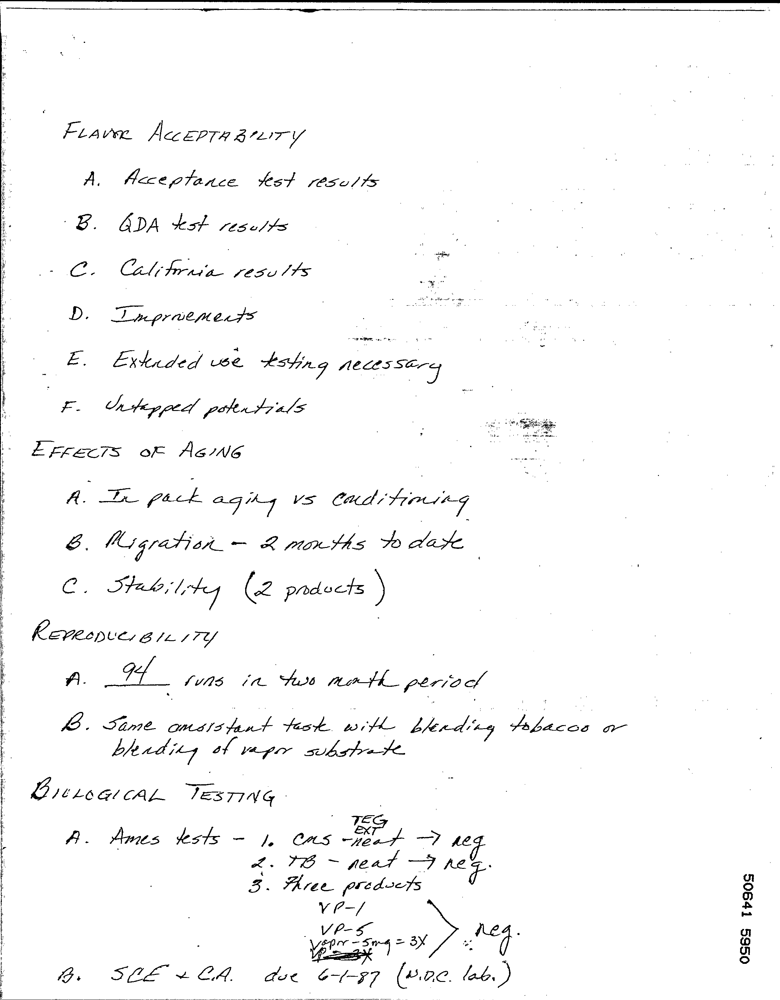 FLAVOR ACCEPTABILITY
A. Acceptance test results
B. QDA test results
C. California results
D. Improvements
E. Extended use testing necessary
F. Untapped potentials
EFFECTS OF AGING
A. In pack aging vs conditioning
B. Migration - 2 months to date
C. Stability (2 products)
REPRODUCIBILITY
A. 94 runs in two month period
B. Same consistant task with blending tobacco or
blending of vapor substrate
BIOLOGICAL TESTING
TEG
EXT
A. Ames tests - 1. CMS - neat → neg
2. TB - neat → neg.
3. Three products
VP-1
VP-5
Vapor-5mg = 3X
neg.
B. SCE + C.A. due 6-1-87 (N.D.C. lab.)
50641 5950